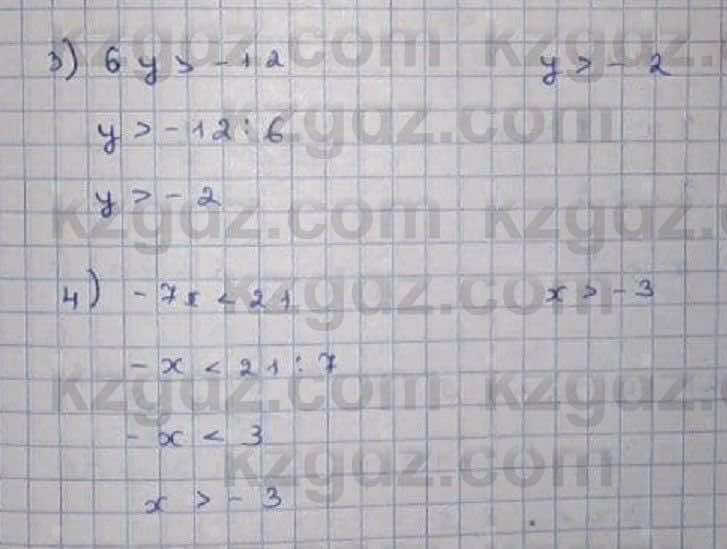 3) 6y > -12 y > -2
y > -12 : 6
y > -2
4) -7x < 21 x > -3
-x < 21 : 7
-x < 3
x > -3
kzgdz.com kzgdz.com
kzgdz.com
kzgdz.com kzgdz.com
kzgdz.com
kzgdz.com kzgdz.com
kzgdz.com